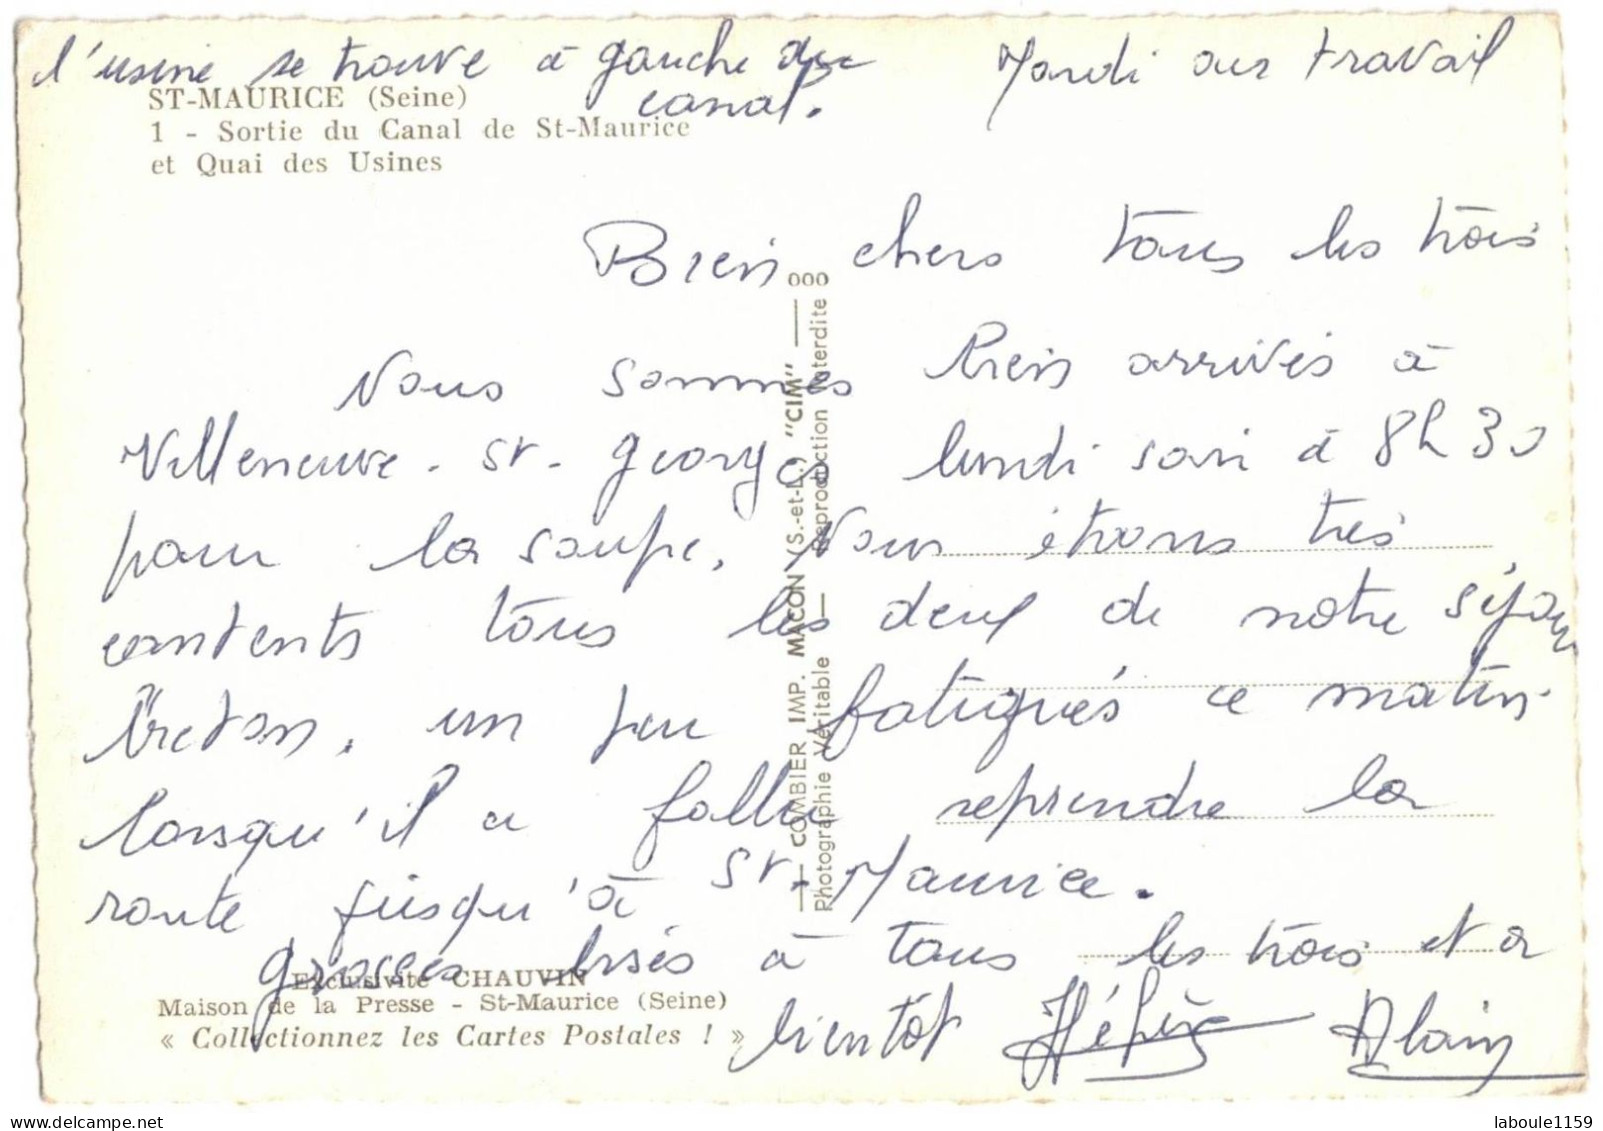 l'usine se trouve à gauche du
canal.
Mardi au travail
ST-MAURICE (Seine)
1 - Sortie du Canal de St-Maurice
et Quai des Usines
Bien chers tous les trois
Nous sommes bien arrivés à
Villeneuve-St-Georges lundi soir à 8h30
pour la soupe. Nous étions très
contents tous les deux de notre séjour
breton, un peu fatigués ce matin
lorsqu'il a fallu reprendre la
route jusqu'à St-Maurice.
grosses bises à tous les trois et à
bientôt Alain
Exclusivité CHAUVIN
Maison de la Presse - St-Maurice (Seine)
« Collectionnez les Cartes Postales ! »
COMBIER IMP. MACON (S.-et-L.) "CIM"
Photographie Véritable — Reproduction Interdite
laboule1159